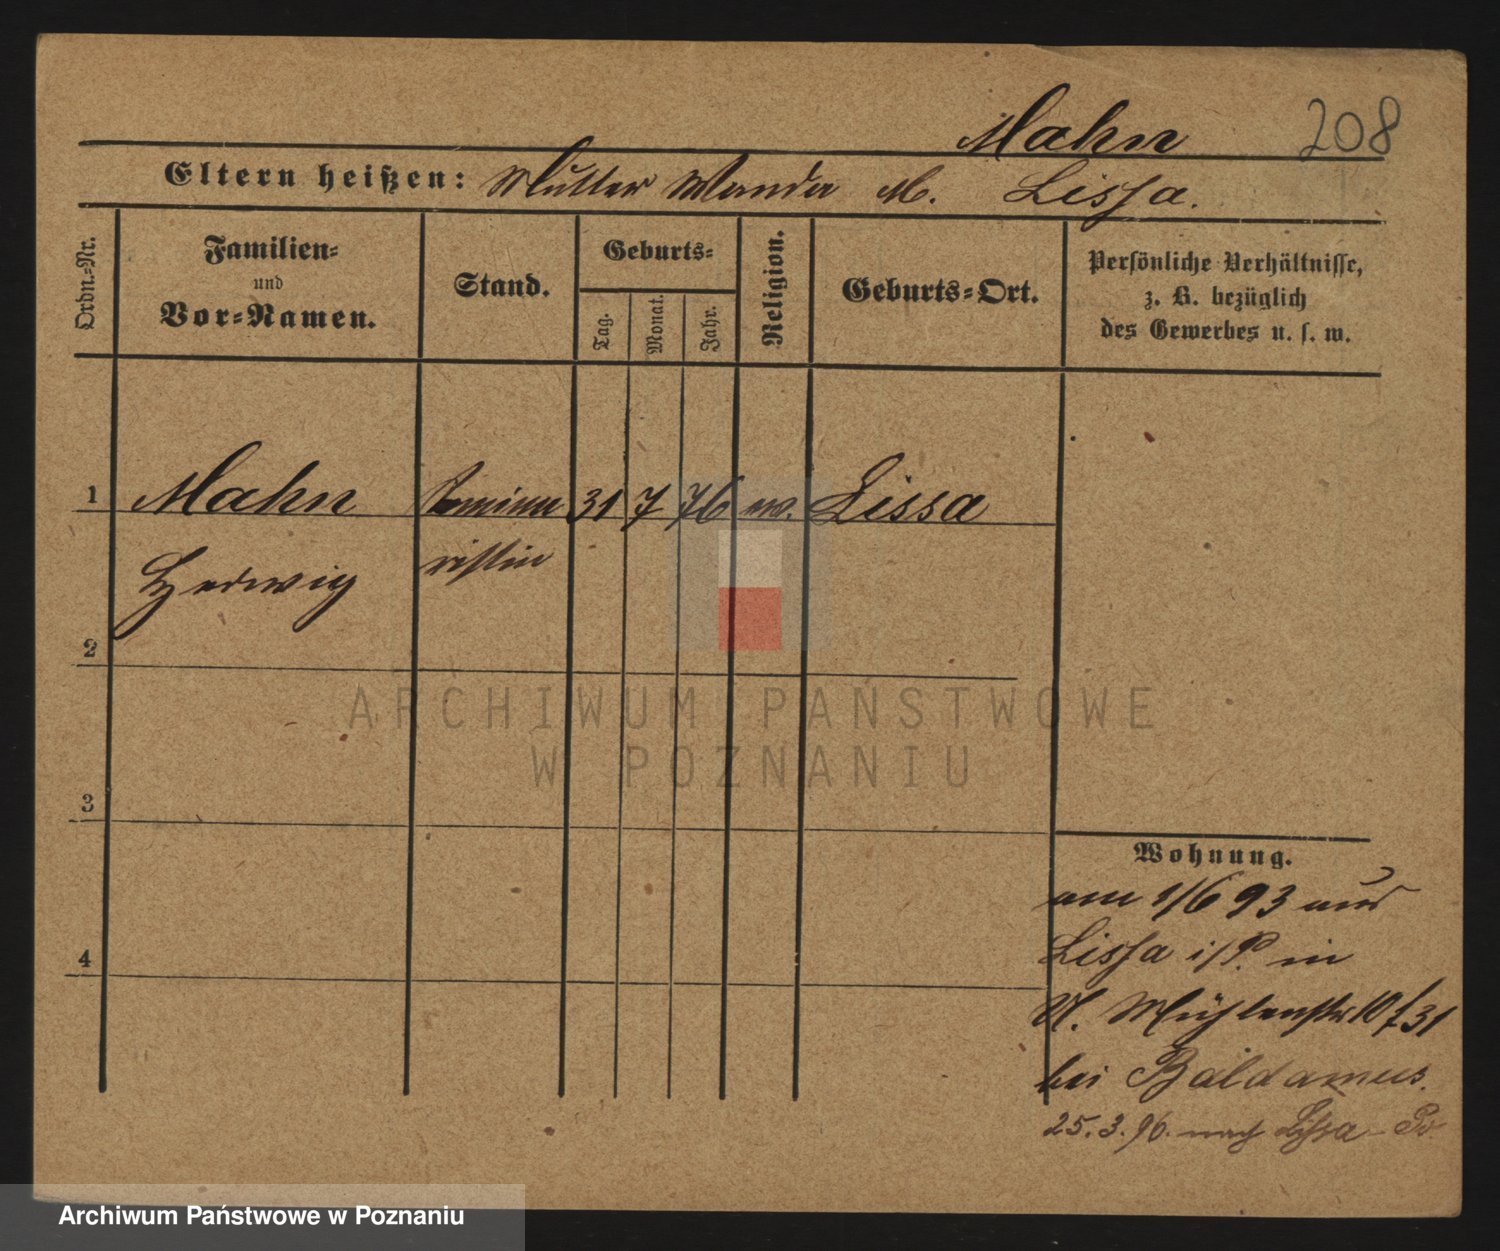 Mahn 208
Eltern heißen: Mutter Wanda M. Lissa.
Ordn.-Nr.
Familien-
und
Vor-Namen.
Stand.
Geburts-
Tag.
Monat.
Jahr.
Religion.
Geburts-Ort.
Persönliche Verhältnisse,
z. B. bezüglich
des Gewerbes u. s. w.
1 Mahn Seminar 31 7 76 ev. Lissa
Hedwig istin
2
ARCHIWUM PAŃSTWOWE
W POZNANIU
3
4
Wohnung.
am 1/6 93 aus
Lissa i/P. in
U. Mühlenstr 10/31
bei Baldamus.
25.3.96. nach Lissa - Po
Archiwum Państwowe w Poznaniu